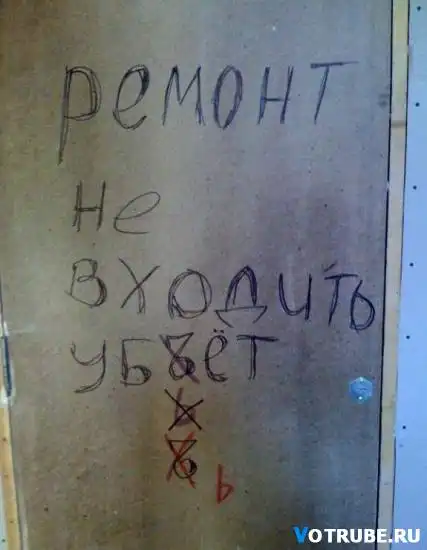 РеМОНТ
Не
ВХОДИТЬ
УБЪЁТ
Ь
Ъ
Ь
VOTRUBE.RU